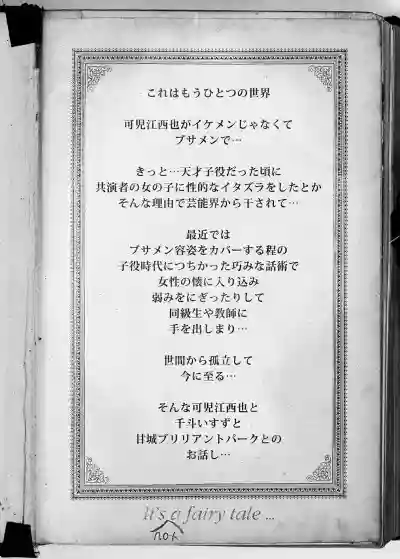 これはもうひとつの世界
可児江西也がイケメンじゃなくて
ブサメンで…
きっと…天才子役だった頃に
共演者の女の子に性的なイタズラをしたとか
そんな理由で芸能界から干されて…
最近では
ブサメン容姿をカバーする程の
子役時代につちかった巧みな話術で
女性の懐に入り込み
弱みをにぎったりして
同級生や教師に
手を出しまり…
世間から孤立して
今に至る…
そんな可児江西也と
千斗いすずと
甘城ブリリアントパークとの
お話し…
it's a fairy tale ...
not